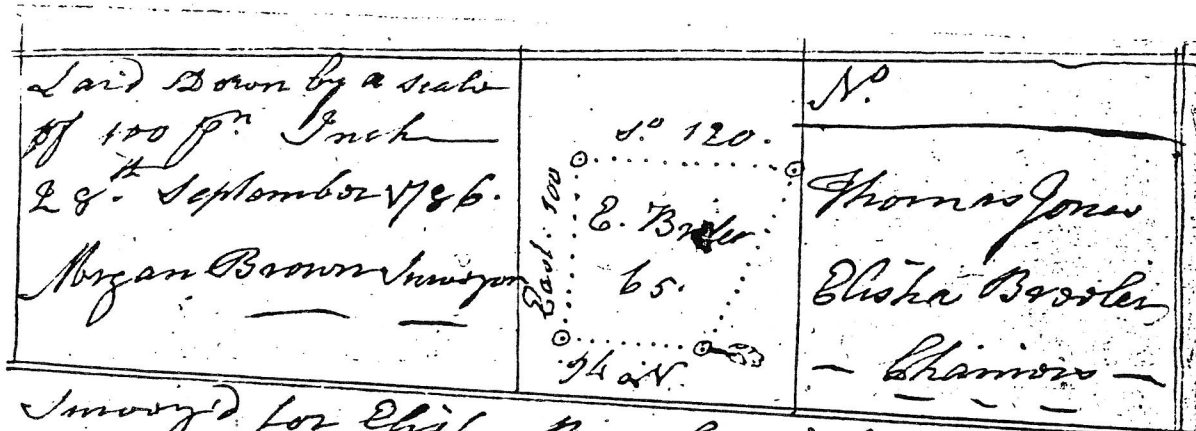 Laid Down by a Scale
of 100 pr. Inch
28th. September 1786.
Morgan Brown Surveyor
So 120.
East. 100
E.
65.
94 N.
No
Thomas Jones
Elisha
Chainers
Survey'd for